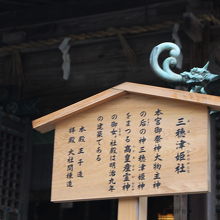 三穂津姫社
本宮御祭神大物主神
の后の神三穂津姫神
をまつる高皇産霊神
の御女、社殿は明治九年
の建築である
本殿 王子造
拝殿 大社関棟造